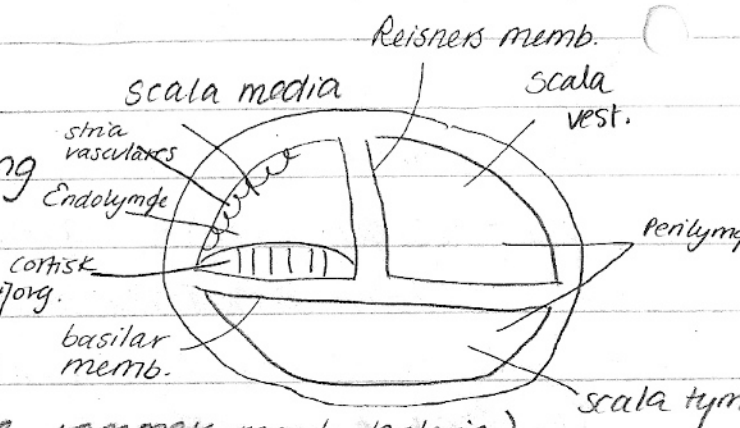 Reisners memb.
scala media
scala
vest.
stria
vasculares
ng
Endolymfe
Perilymf
cortisk
org.
basilar
memb.
scala tym